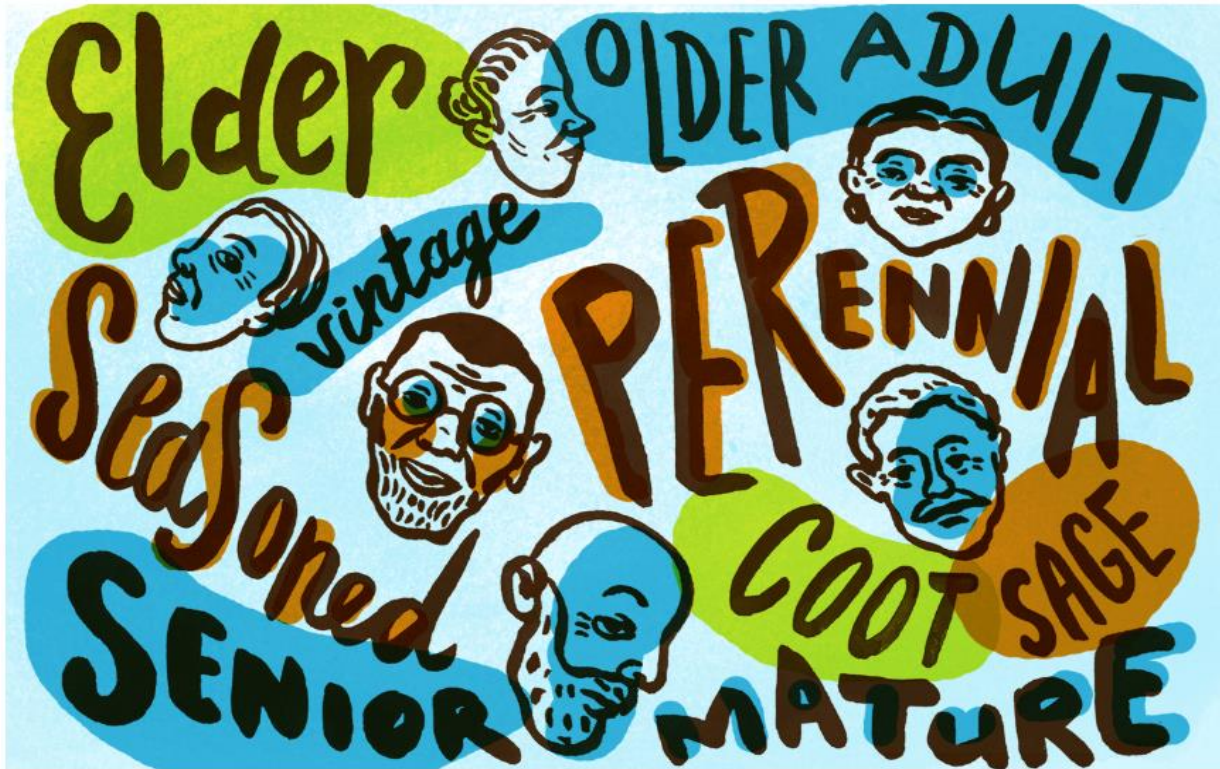 Elder
OLDER ADULT
vintage
PERENNIAL
Seasoned
COOT
SAGE
SENIOR
MATURE